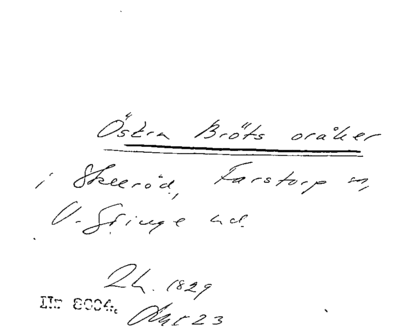 Östra Bröts oråker
i Skeeröd, Farstorp sn,
V. Göinge hd.
2h. 1829
Nr 8004. Akt 23